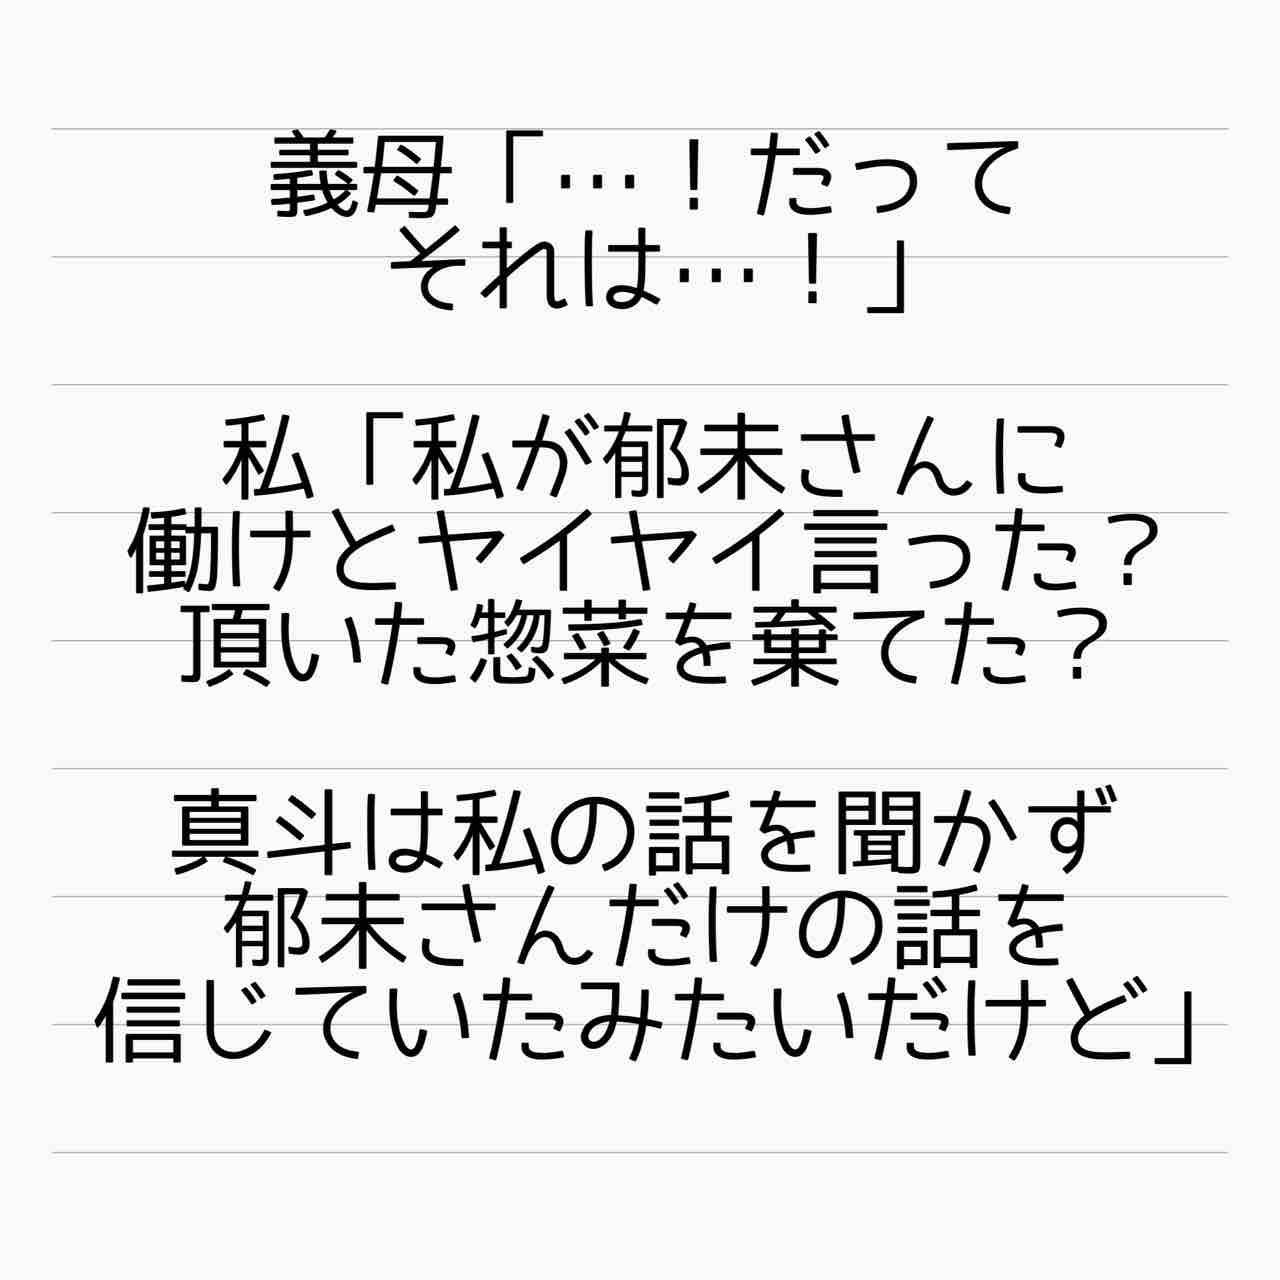 義母「…！だって
それは…！」
私「私が郁未さんに
働けとヤイヤイ言った？
頂いた惣菜を棄てた？
真斗は私の話を聞かず
郁未さんだけの話を
信じていたみたいだけど」